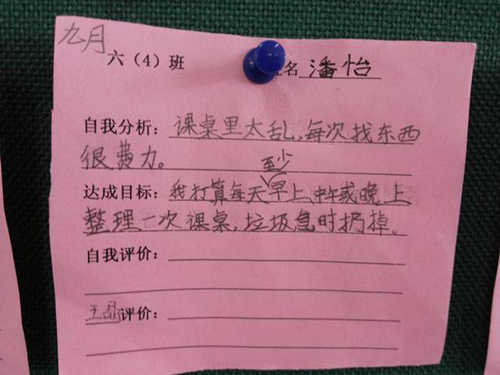 九月
六（4）班 名 潘怡
自我分析：课桌里太乱，每次找东西
很费力。
至少
达成目标：我打算每天早上、中午或晚上
整理一次课桌，垃圾急时扔掉。
自我评价：
王晶评价：